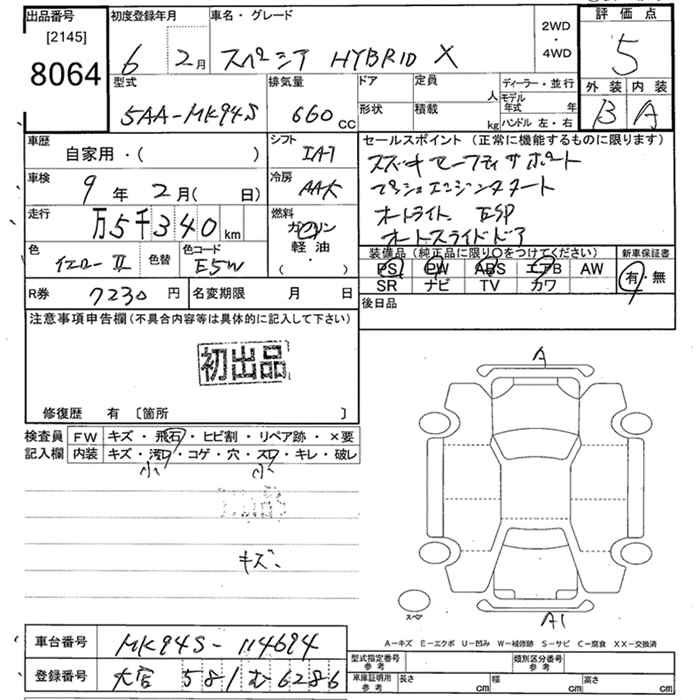 出品番号 初度登録年月 車名・グレード 2WD・4WD 評価点
[2145] 8064 6 2月 スペーシア HYBRID X 5
外装 内装
B A
型式 排気量 ドア 定員 人 ディーラー・並行
5AA-MK94S 660cc 形状 積載 kg モデル年式 年
ハンドル 左・右
車歴 自家用・( ) シフト IAT セールスポイント (正常に機能するものに限ります)
スズキセーフティサポート
車検 9年2月( 日) 冷房 AAC プッシュエンジンスタート
走行 万5千340km 燃料 ガソリン 軽油・( ) オートライト ESP
オートスライドドア
色 イエローII 色替 色コード E5W
装備品 (純正品に限り○をつけてください) 新車保証書
PS PW ABS エアB AW 有・無
SR ナビ TV カワ
R券 7230円 名変期限 月 日 後日品
注意事項申告欄 (不具合内容等は具体的に記入して下さい)
初出品
修復歴 有 [箇所 ]
検査員記入欄 FW キズ・飛石・ヒビ割・リペア跡・×要
内装 キズ・汚れ・コゲ・穴・スレ・キレ・破レ
小 小
キズ
A
A1
スペア
A-キズ E-エクボ U-凹み W-補修跡 S-サビ C-腐食 XX-交換済
車台番号 MK94S-114694
登録番号 大宮 581 む 6286
型式指定番号 参考 類別区分番号 参考
車庫証明用 参考 長さ cm 幅 cm 高さ cm